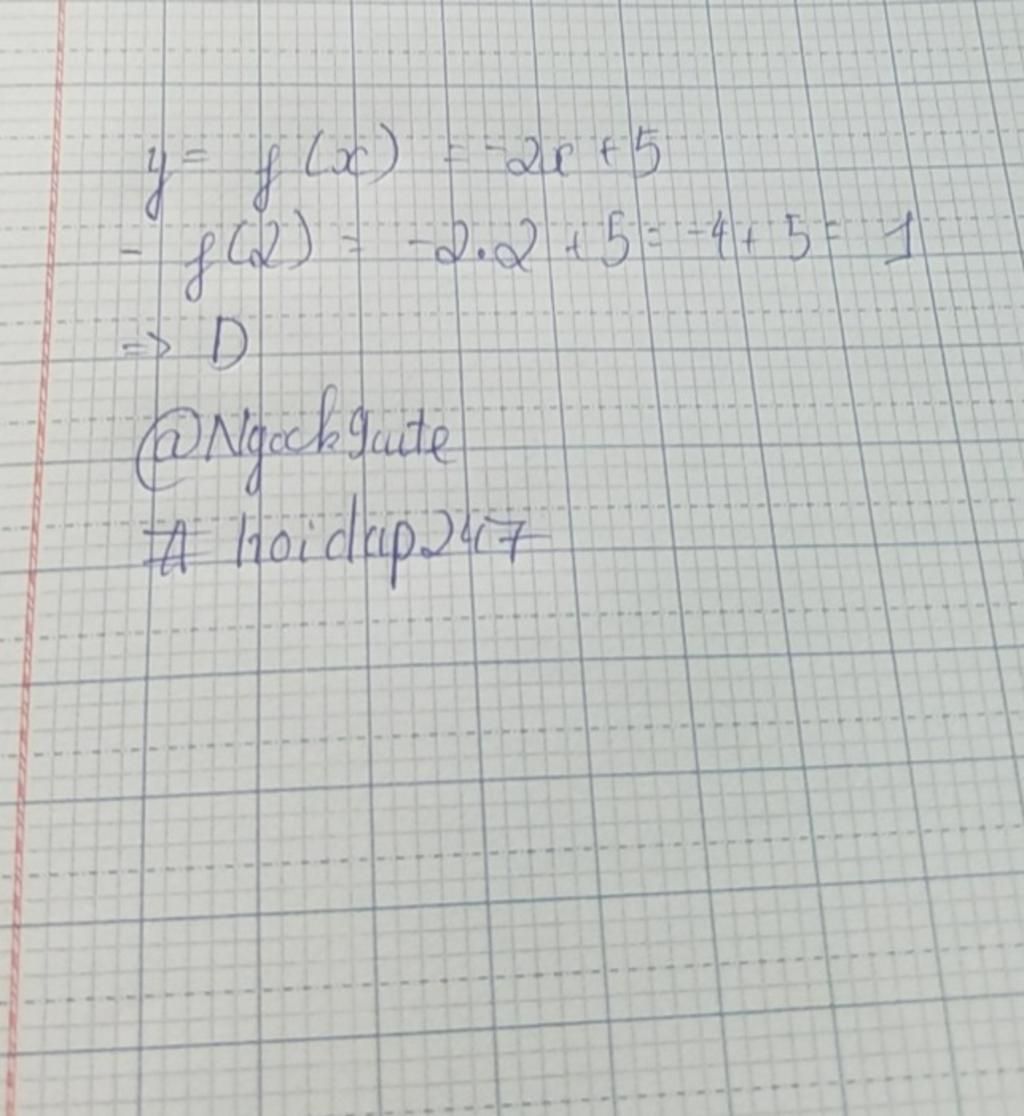 y = f(x) = -2x + 5
- f(2) = -2.2 + 5 = -4 + 5 = 1
=> D
@Ngockguite
# hoidap247